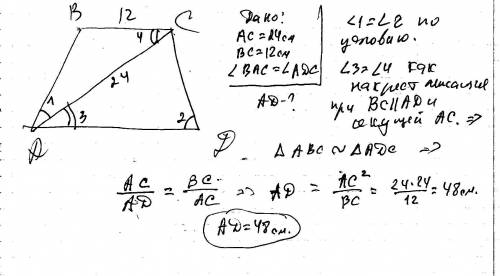 B 12 C
4
24
1 3 2
A D
Дано:
AC = 24 см
BC = 12 см
∠BAC = ∠ADC
AD - ?
∠1 = ∠2 по
условию.
∠3 = ∠4 как
накрест лежащие
при BC || AD и
секущей AC. ⇒
△ABC ∼ △ADC ⇒
AC/AD = BC/AC ⇒ AD = AC²/BC = 24·24/12 = 48 см.
AD = 48 см.